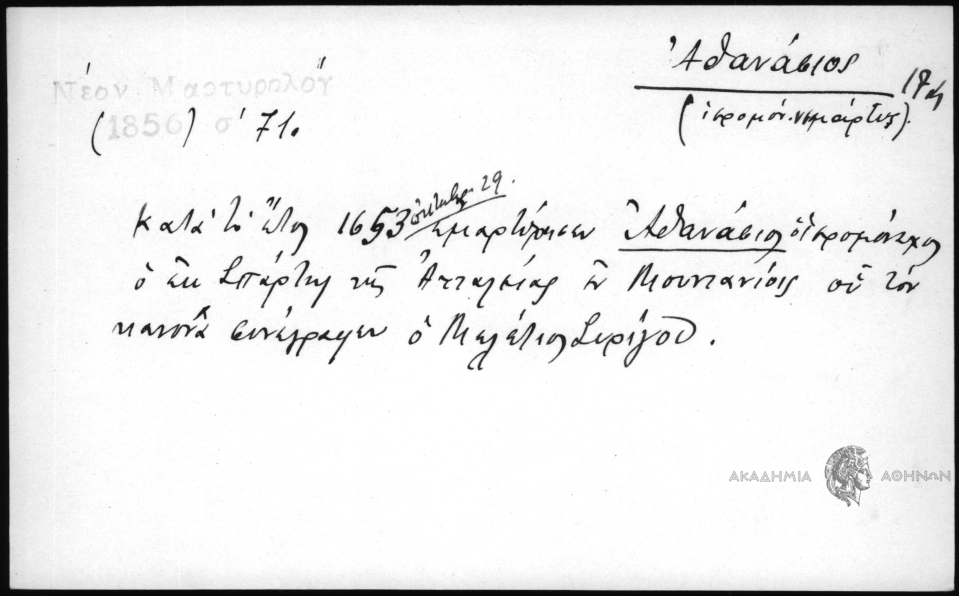 Ἀθανάσιος
(ἱερομόν. νεομάρτυς).
Νέον Μαρτυρολόγ
(1856) σ' 71.
Κατὰ τὸ ἔτος 1653 ὀκτωβρ. 29. ἐμαρτύρησεν Ἀθανάσιος ὁ ἱερομόναχος
ὁ ἐκ Σπάρτης τῆς Ἀτταλείας ἐν Μουντανίοις οὗ τὸν
κανόνα συνέγραψεν ὁ Μελέτιος Συρίγου.
ΑΚΑΔΗΜΙΑ ΑΘΗΝΩΝ